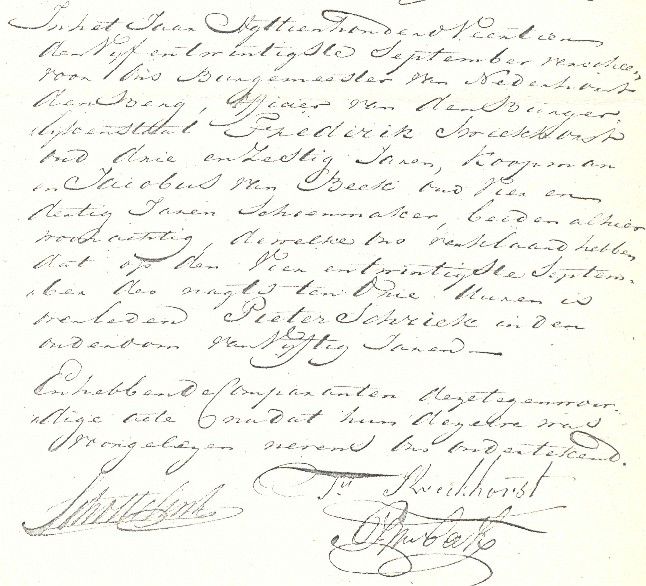 In het Jaar Agttienhonderd Veertien
den Vijf en twintigste September verscheen
voor ons Burgemeester van Nederhorst
den Berg, Officier van den Burger-
lijken staat Frederik Kwekhorst
oud drie en Zestig Jaren, Koopman
en Jacobus van Beek oud Vier en
dertig Jaren Schoenmaker, beiden alhier
woonachtig, dewelke ons verklaard hebben
dat op den Vier entwintigste Septem-
ber des nagts ten Drie Uuren is
overleden Pieter Schriek in den
ouderdom van Vijftig Jaren
En hebben de Comparanten deze tegenwoor-
dige acte nadat hun dezelve was
voorgelezen nevens ons ondertekend.
Fr Kwekhorst
J van Beek